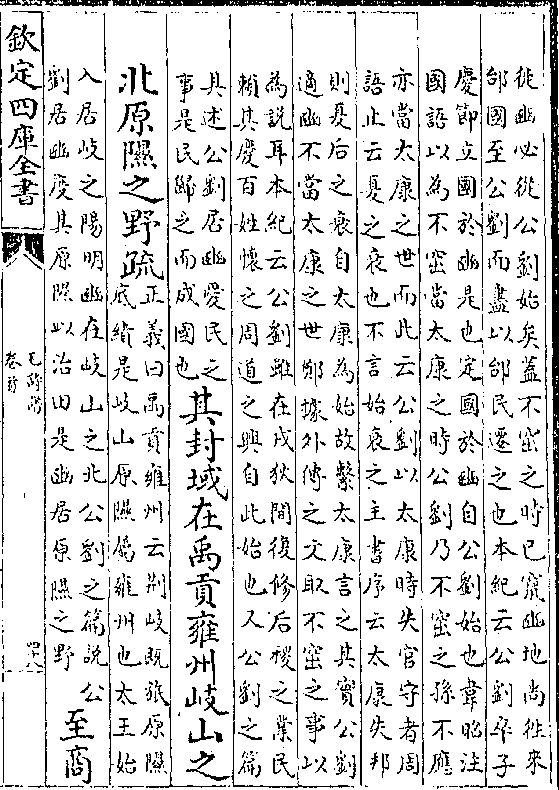 徙豳必從公劉始矣蓋不窋之時已竄豳地尚往來
邰國至公劉而盡以邰民遷之也本紀云公劉卒子
慶節立國於豳是也定國於豳自公劉始也韋昭注
國語以為不窋當太康之時公劉乃不窋之孫不應
亦當太康之世而此云公劉以太康時失官守者周
語止云夏之衰也不言始衰之主書序云太康失邦
則夏后之衰自太康為始故繫太康言之其實公劉
適豳不當太康之世鄭據外傳之文取不窋之事以
為說耳本紀云公劉雖在戎狄間復修后稷之業民
賴其慶百姓懷之周道之興自此始也又公劉之篇
具述公劉居豳愛民之
事是民歸之而成國也
其封域在禹貢雍州岐山之
北原隰之野疏
正義曰禹貢雍州云荆岐既旅原隰
底績是岐山原隰屬雍州也太王始
入居岐之陽明豳在岐山之北公劉之篇說公
劉居豳度其原隰以治田是豳居原隰之野
至商
欽定四庫全書
毛詩譜
卷首